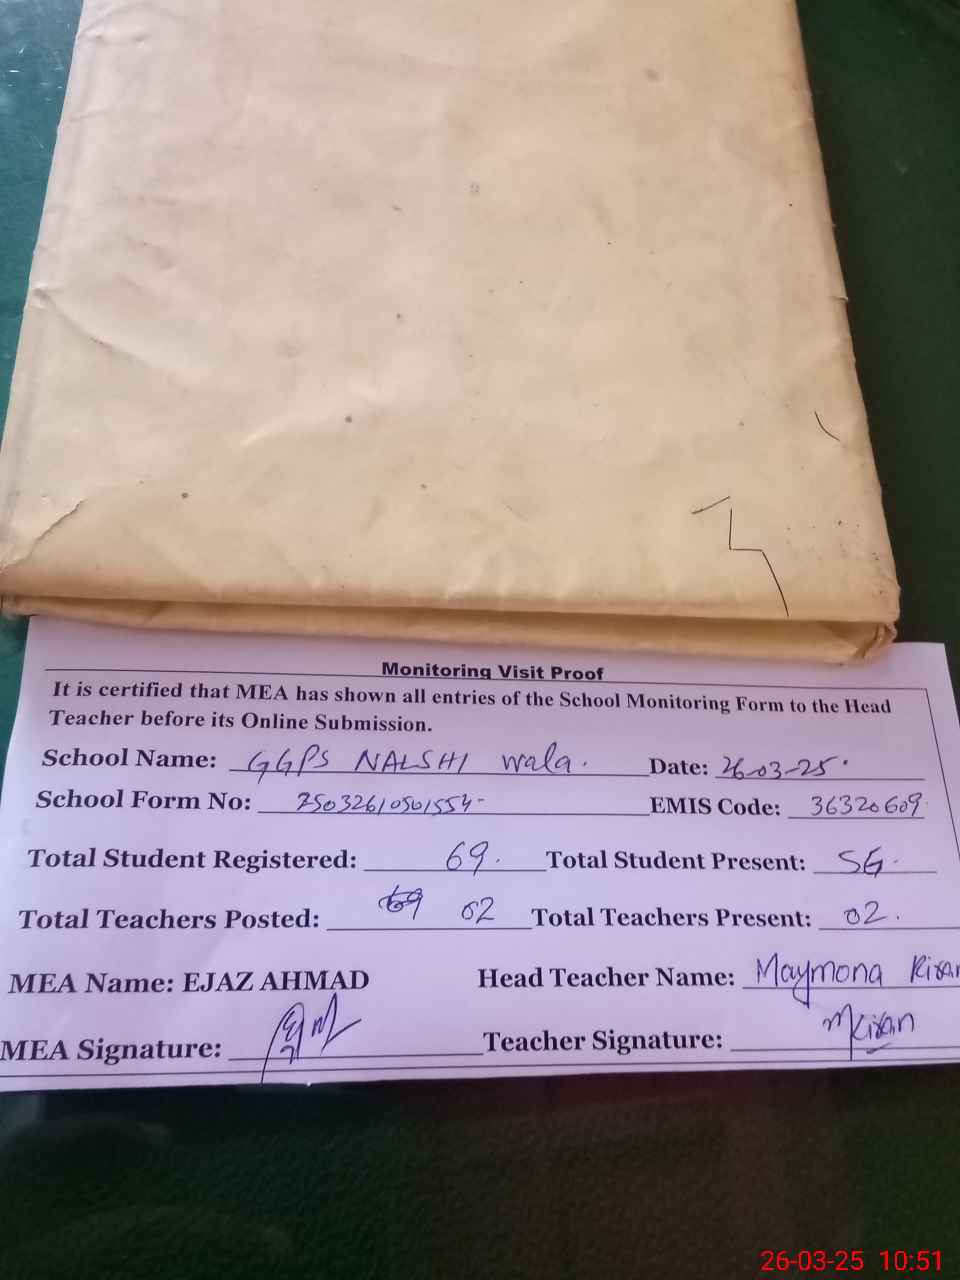 Monitoring Visit Proof
It is certified that MEA has shown all entries of the School Monitoring Form to the Head
Teacher before its Online Submission.
School Name: GGPS NALSHI wala. Date: 26-03-25
School Form No: 25032610501554 EMIS Code: 36320609
Total Student Registered: 69. Total Student Present: 56.
Total Teachers Posted: 02 Total Teachers Present: 02.
MEA Name: EJAZ AHMAD Head Teacher Name: Maymona Kiran
MEA Signature: Teacher Signature: MKiran
26-03-25 10:51